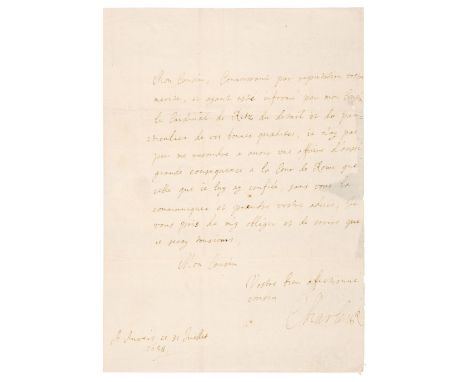 Mon Cousin, Connoissant par reputation vostre
merite, et ayant esté informé par mon Cousin
le Cardinal de Retz du detail et du par-
ticulier de vos bonnes qualites, ie n'ay pas
peu me resoudre a avoir une affaire d'aussi
grande consequence a la Cour de Rome que
celle que ie luy ay confiée, sans vous la
communiquer et prendre vostre advis, ie
vous prie de m'y obliger et de croire que
ie seray tousiours,
Mon Cousin
Vostre bien affectionné
cousin
Charles R
A Anvers ce 31 Juillet
1658